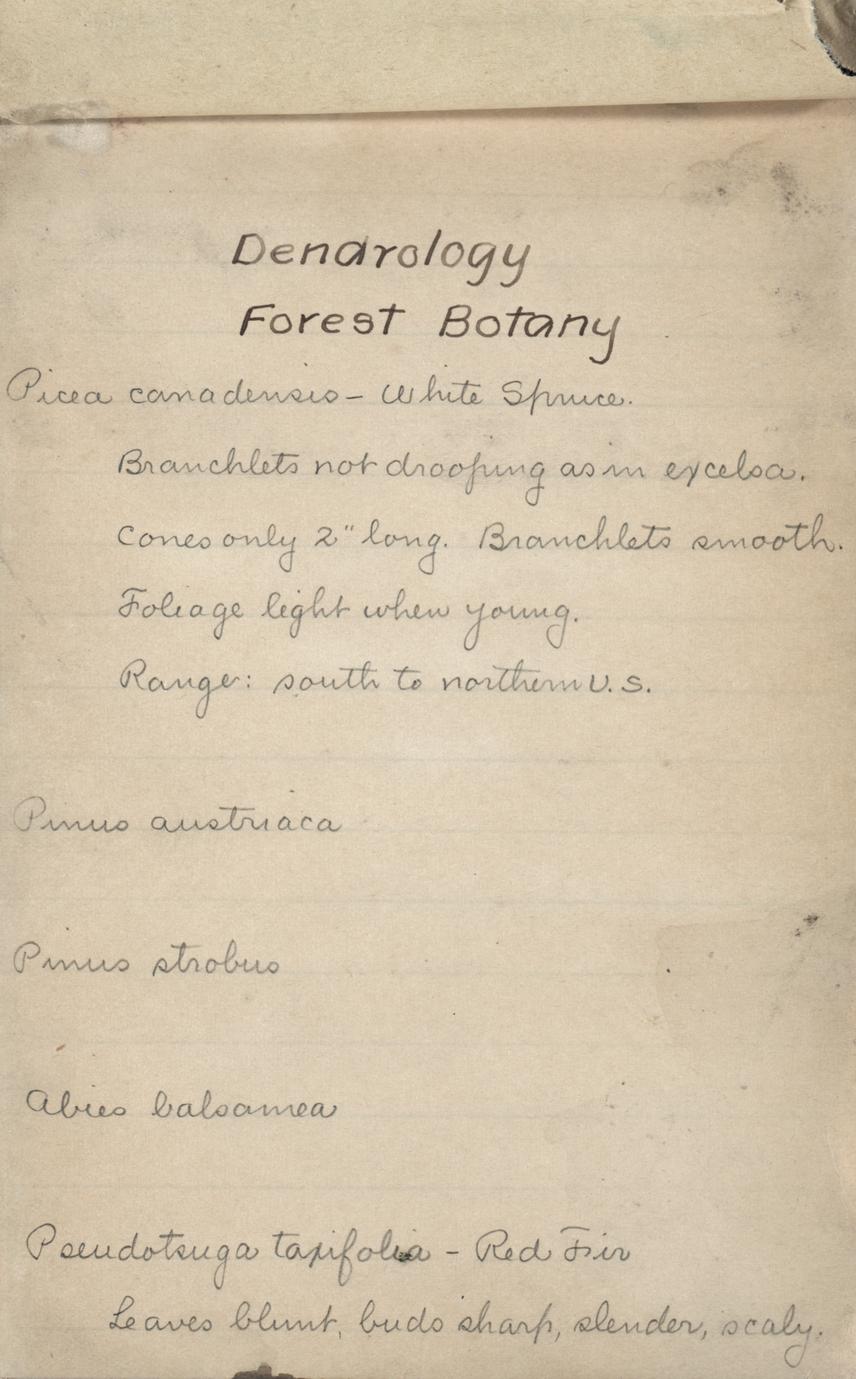 Dendrology
Forest Botany
Picea canadensis – White Spruce.
Branchlets not drooping as in excelsa.
Cones only 2" long. Branchlets smooth.
Foliage light when young.
Range: south to northern U.S.
Pinus austriaca
Pinus strobus
Abies balsamea
Pseudotsuga taxifolia – Red Fir
Leaves blunt, buds sharp, slender, scaly.